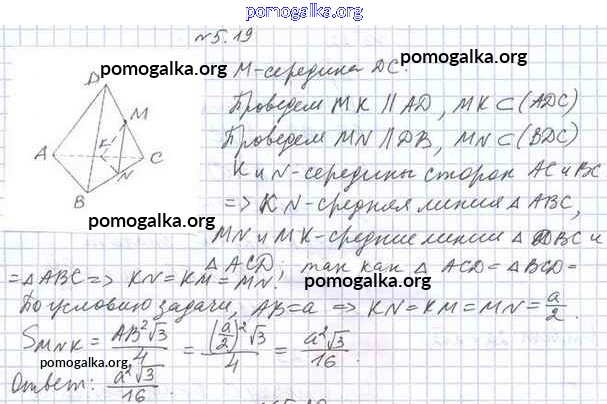 pomogalka.org
№5.19
pomogalka.org
pomogalka.org
M-середина DC.
Проведем MK || AD, MK ⊂ (ADC)
Проведем MN || DB, MN ⊂ (BDC)
K и N-середины сторон AC и BC
=> KN-средняя линия △ ABC,
MN и MK-средние линии △ DBC и
△ ACD; так как △ ACD = △ BCD =
= △ ABC => KN = KM = MN.
По условию задачи, AB = a => KN = KM = MN = a/2.
S MNK = AB²√3/4 = (a/2)²√3/4 = a²√3/16.
Ответ: a²√3/16.
D
M
A
K
C
N
B
pomogalka.org
pomogalka.org
pomogalka.org